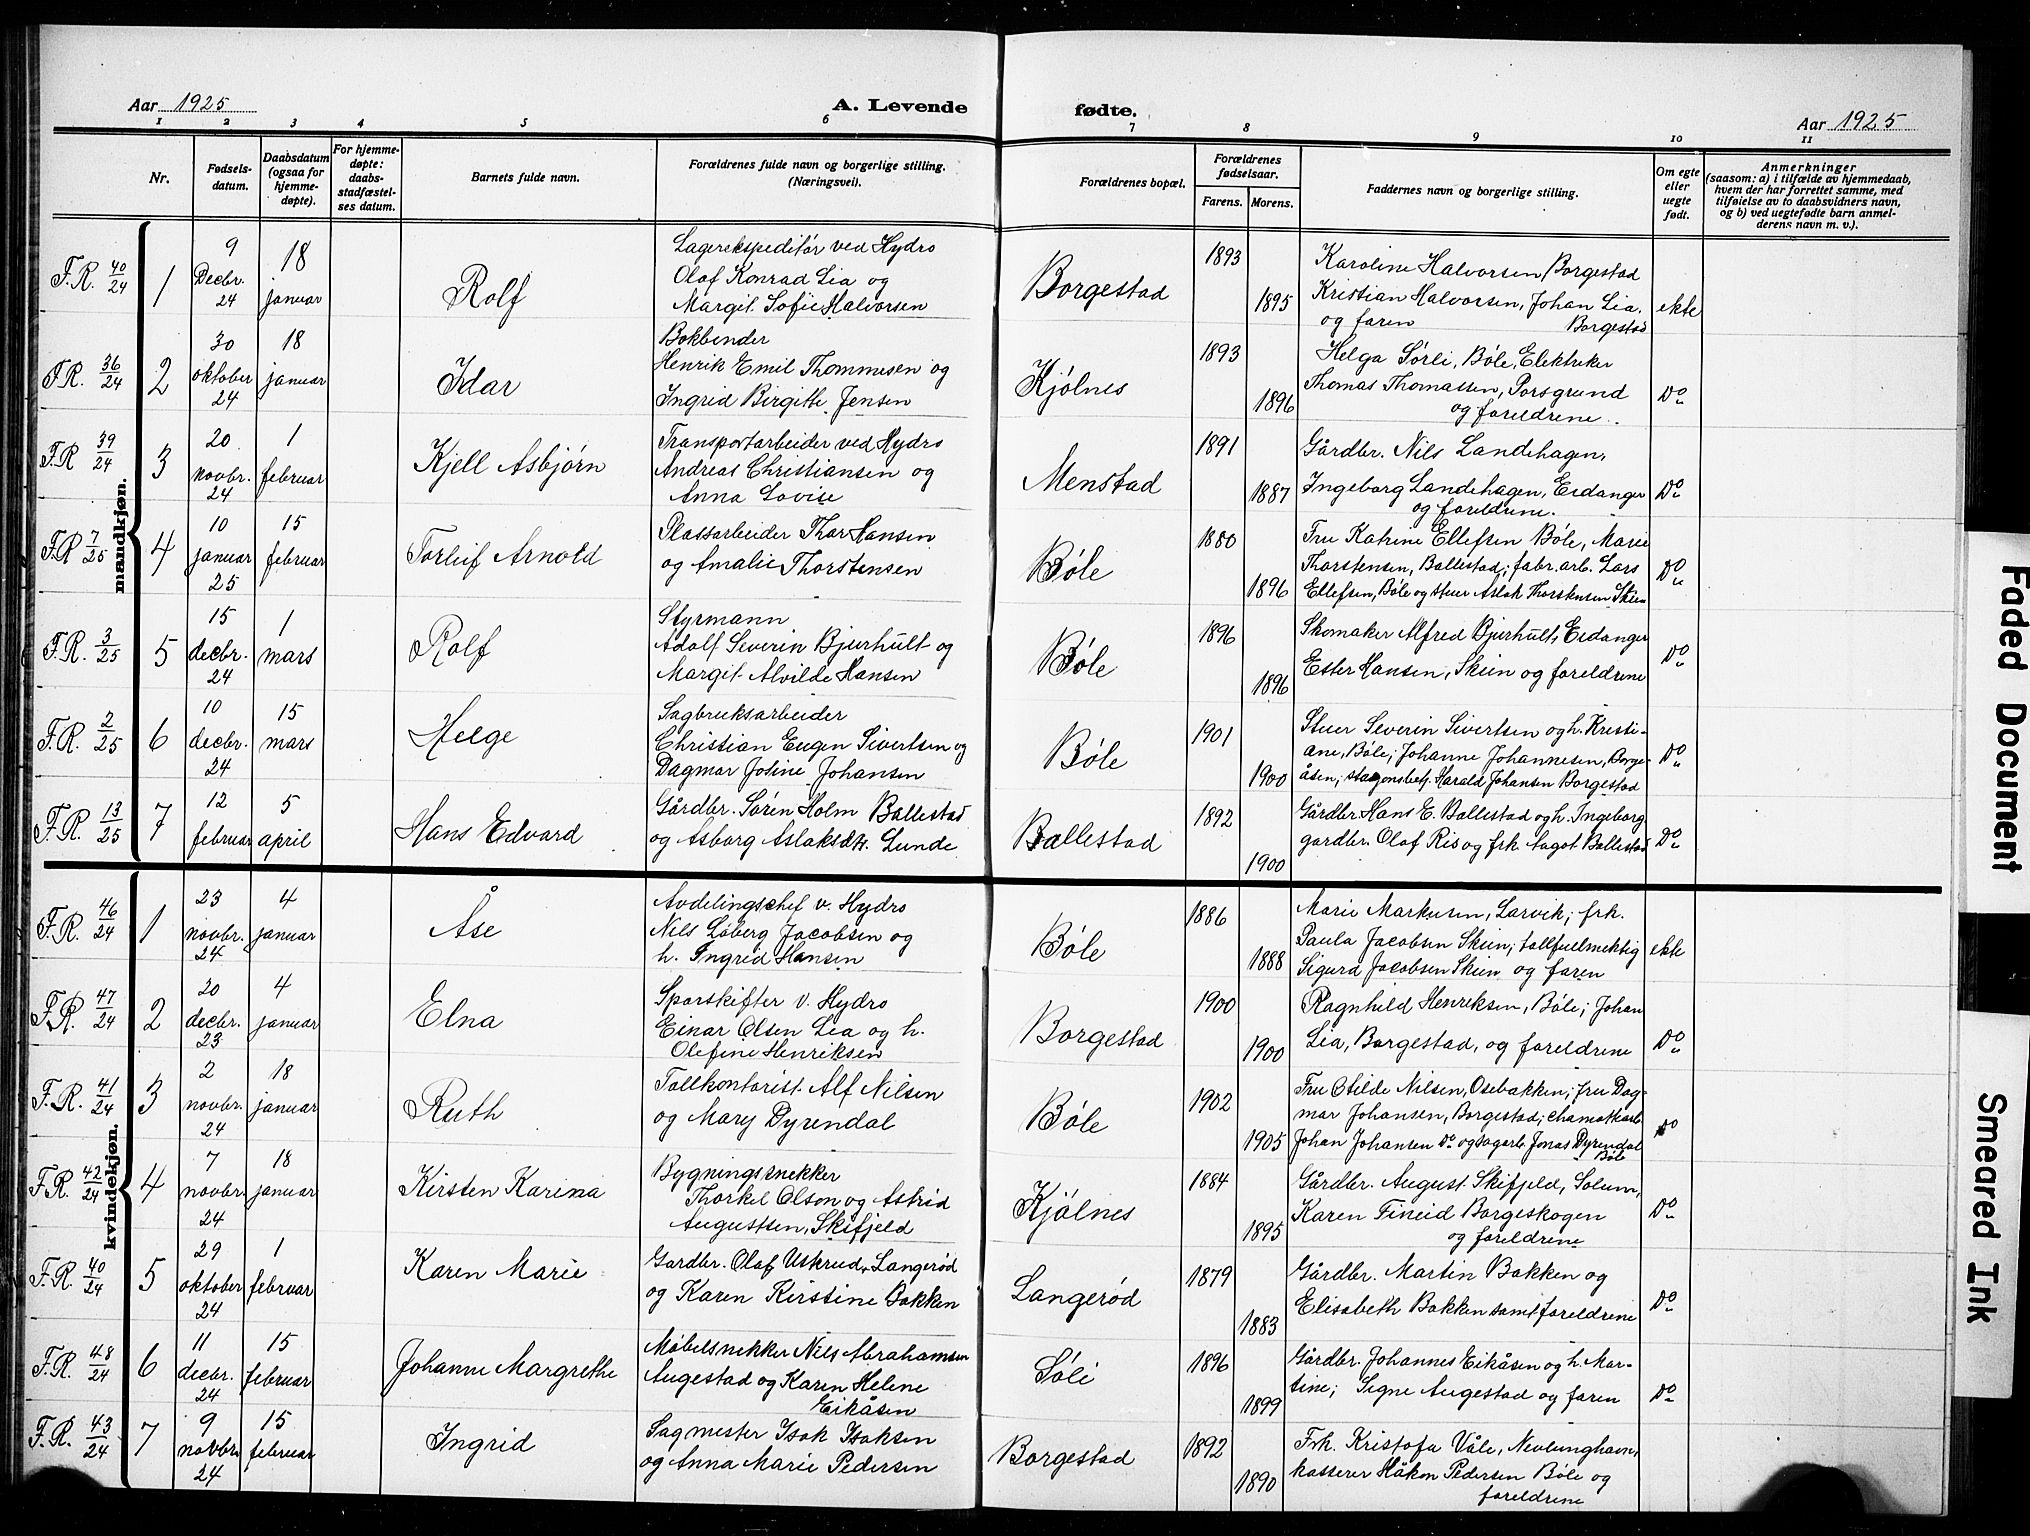 Aar 1925
A. Levende
fødte.
Aar 1925
1 2 3 4 5 6 7 8 9 10 11
Nr.
Fødsels-
datum.
Daabsdatum
(ogsaa for
hjemme-
døpte).
For hjemme-
døpte:
daabs-
stadfæstel-
ses datum.
Barnets fulde navn.
Forældrenes fulde navn og borgerlige stilling.
(Næringsvei).
Forældrenes bopæl.
Forældrenes
fødselsaar.
Farens. Morens.
Faddernes navn og borgerlige stilling.
Om egte
eller
uegte
født.
Anmerkninger
(saasom: a) i tilfælde av hjemmedaab,
hvem der har forrettet samme, med
tilføielse av to daabsvidners navn,
og b) ved uegtefødte barn anmel-
derens navn m. v.).
mandkjøn.
F.R. 40/24
1
9
Decbr.
24
18
januar
Rolf
Lagerekspeditør ved Hydro
Olaf Konrad Lia og
Margit Sofie Halvorsen
Borgestad
1893
1895
Karoline Halvorsen, Borgestad
Kristian Halvorsen, Johan Lia,
og faren Borgestad
ekte
F.R. 36/24
2
30
oktober
24
18
januar
Idar
Bokbinder
Henrik Emil Thommesen og
Ingrid Birgithe Jensen
Kjølnes
1893
1896
Helga Sørli, Bøle, Elektriker
Thomas Thomassen, Porsgrund
og foreldrene.
Do
F.R 39/24
3
20
novbr.
24
1
februar
Kjell Asbjørn
Transportarbeider ved Hydro
Andreas Christiansen og
Anna Lovise
Menstad
1891
1887
Gårdbr. Nils Landehagen,
Ingeborg Landehagen, Eidanger
og foreldrene.
Do
F.R 7/25
4
10
januar
25
15
februar
Torleif Arnold
Plassarbeider Thor Hansen
og Amalie Thorstensen
Bøle
1880
1896
Fru Katrine Ellefsen Bøle, Marie
Thorstensen, Ballestad; fabr. arb. Lars
Ellefsen, Bøle og stuer Aslak Thorstensen Skien
Do
F.R. 3/25
5
15
decbr.
24
1
mars
Rolf
Styrmann
Adolf Severin Bjerhult og
Margit Alvilde Hansen
Bøle
1896
1896
Skomaker Alfred Bjerhult, Eidanger
Ester Hansen, Skien og foreldrene
Do
F.R. 2/25
6
10
decbr.
24
15
mars
Helge
Sagbruksarbeider
Christian Eugen Sivertsen og
Dagmar Josine Johansen
Bøle
1901
1900
Stuer Severin Sivertsen og h. Kristi-
ane, Bøle; Johanne Johannesen, Borge-
åsen; Harald Johansen Borgestad
Do
F.R. 13/25
7
12
februar
5
april
Hans Edvard
Gårdbr. Søren Holm Ballestad
og Asborg Aslaksdtr. Lunde
Ballestad
1892
1900
Gårdbr. Hans E. Ballestad og h. Ingeborg
gardbr. Olaf Ris og frk. Aagot Ballestad
Do
kvindekjøn.
F.R. 46/24
1
23
novbr.
24
4
januar
Åse
Avdelingschef v. Hydro
Nils Løberg Jacobsen og
h. Ingrid Hansen
Bøle
1886
1888
Marie Markusen, Larvik; frk.
Paula Jacobsen Skien; tollfuelmektig
Sigurd Jacobsen Skien og faren
ekte
F.R. 47/24
2
20
decbr.
23
4
januar
Elna
Sporskifter v. Hydro
Einar Olsen Lia og h.
Olefine Henriksen
Borgestad
1900
1900
Ragnhild Henriksen, Bøle; Johan
Lia, Borgestad, og foreldrene
Do
F.R. 41/24
3
2
novbr.
24
18
januar
Ruth
Tollkontorist Alf Nilsen
og Mary Dyrendal
Bøle
1902
1905
Fru Otilde Nilsen, Osebakken; fru Dag-
mar Johansen, Borgestad; chamottearb.
Johan Johansen Do og sagarb. Jonas Dyrendal
Bøle
Do
F.R. 42/24
4
7
novbr.
24
18
januar
Kirsten Karina
Bygningssnekker
Thorkel Olson og Astrid
Augustsen, Skifjeld
Kjølnes
1884
1895
Gårdbr. August Skifjeld, Solum,
Karen Fineid Borgeskogen
og foreldrene
Do
F.R. 40/24
5
29
oktober
24
1
februar
Karen Marie
Gardbr. Olaf Uskrud, Langerød
og Karen Kirstine Bakken
Langerød
1879
1883
Gårdbr. Martin Bakken og
Elisabeth Bakken samt foreldrene
Do
F.R. 48/24
6
11
decbr.
24
15
februar
Johanne Margrethe
Møbelsnekker Nils Abrahamsen
Augestad og Karen Helene
Eikåsen
Søli
1896
1899
Gårdbr. Johannes Eikåsen og h. Mar-
tine; Signe Augestad og faren
Do
F.R. 43/24
7
9
novbr
24
15
februar
Ingrid
Sagmester Isak Isaksen
og Anna Marie Pedersen
Borgestad
1892
1890
Frk. Kristofa Våle, Nevlunghavn,
kasserer Håkon Pedersen Bøle og
foreldrene
Faded Document
Smeared Ink